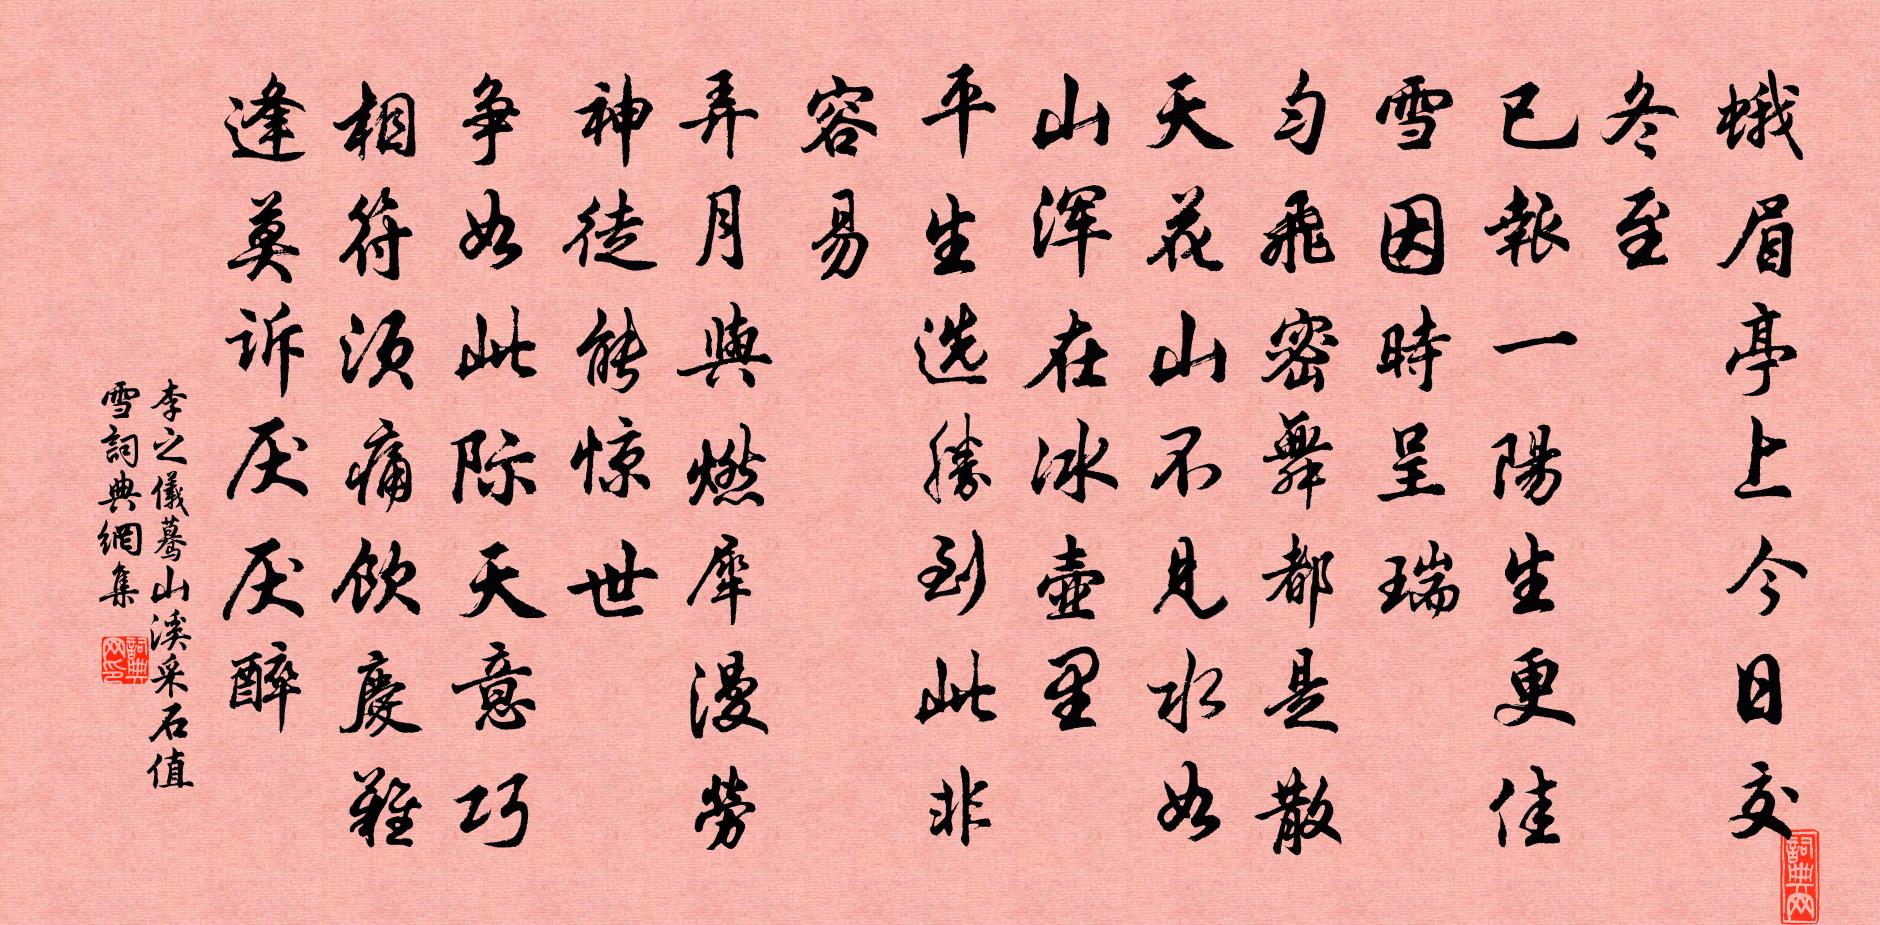 蛾眉亭上今日交
冬至
已報一陽生更佳
雪因時呈瑞
匀飛密舞都是散
天花山不見水如
山浑在冰壷里
平生选勝到此非
容易
弄月與燃犀漫勞
神徒能惊世
争如此际天意巧
相符须痛飲慶難
逢莫诉厌厌醉
李之儀驀山溪采石值
雪詞典網集
詞典网
詞典网印